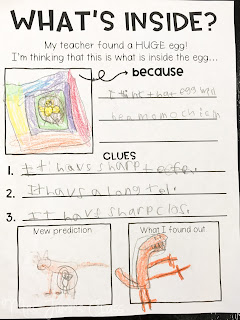 WHAT'S INSIDE?
My teacher found a HUGE egg!
I'm thinking that this is what is inside the egg...
because
I tint that egg will
be a
CLUES
1. It havs sharp
2. It havs a long tel.
3. It havs sharp clos.
New prediction
What I found out